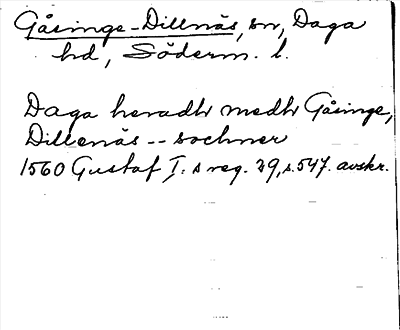 Gåsinge-Dillnäs, sn, Daga
hd, Söderm. l.
Daga heradh medh Gåsinge,
Dillenäs -- sochner
1560 Gustaf I:s reg. 29, s. 547. avskr.